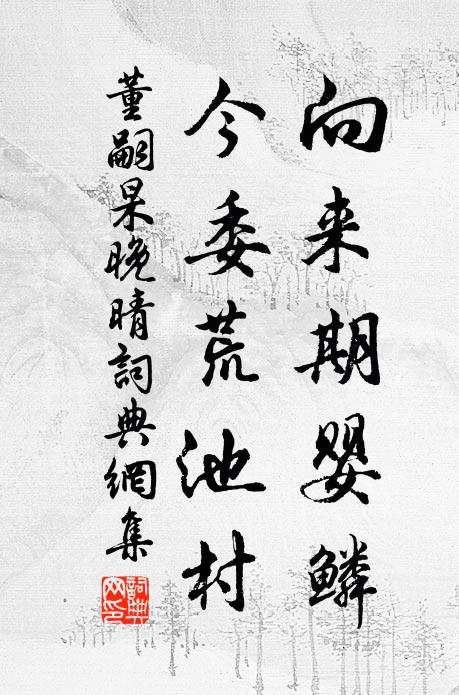 向来期婴鳞
今委荒池村
董嗣杲晚晴詞典網集